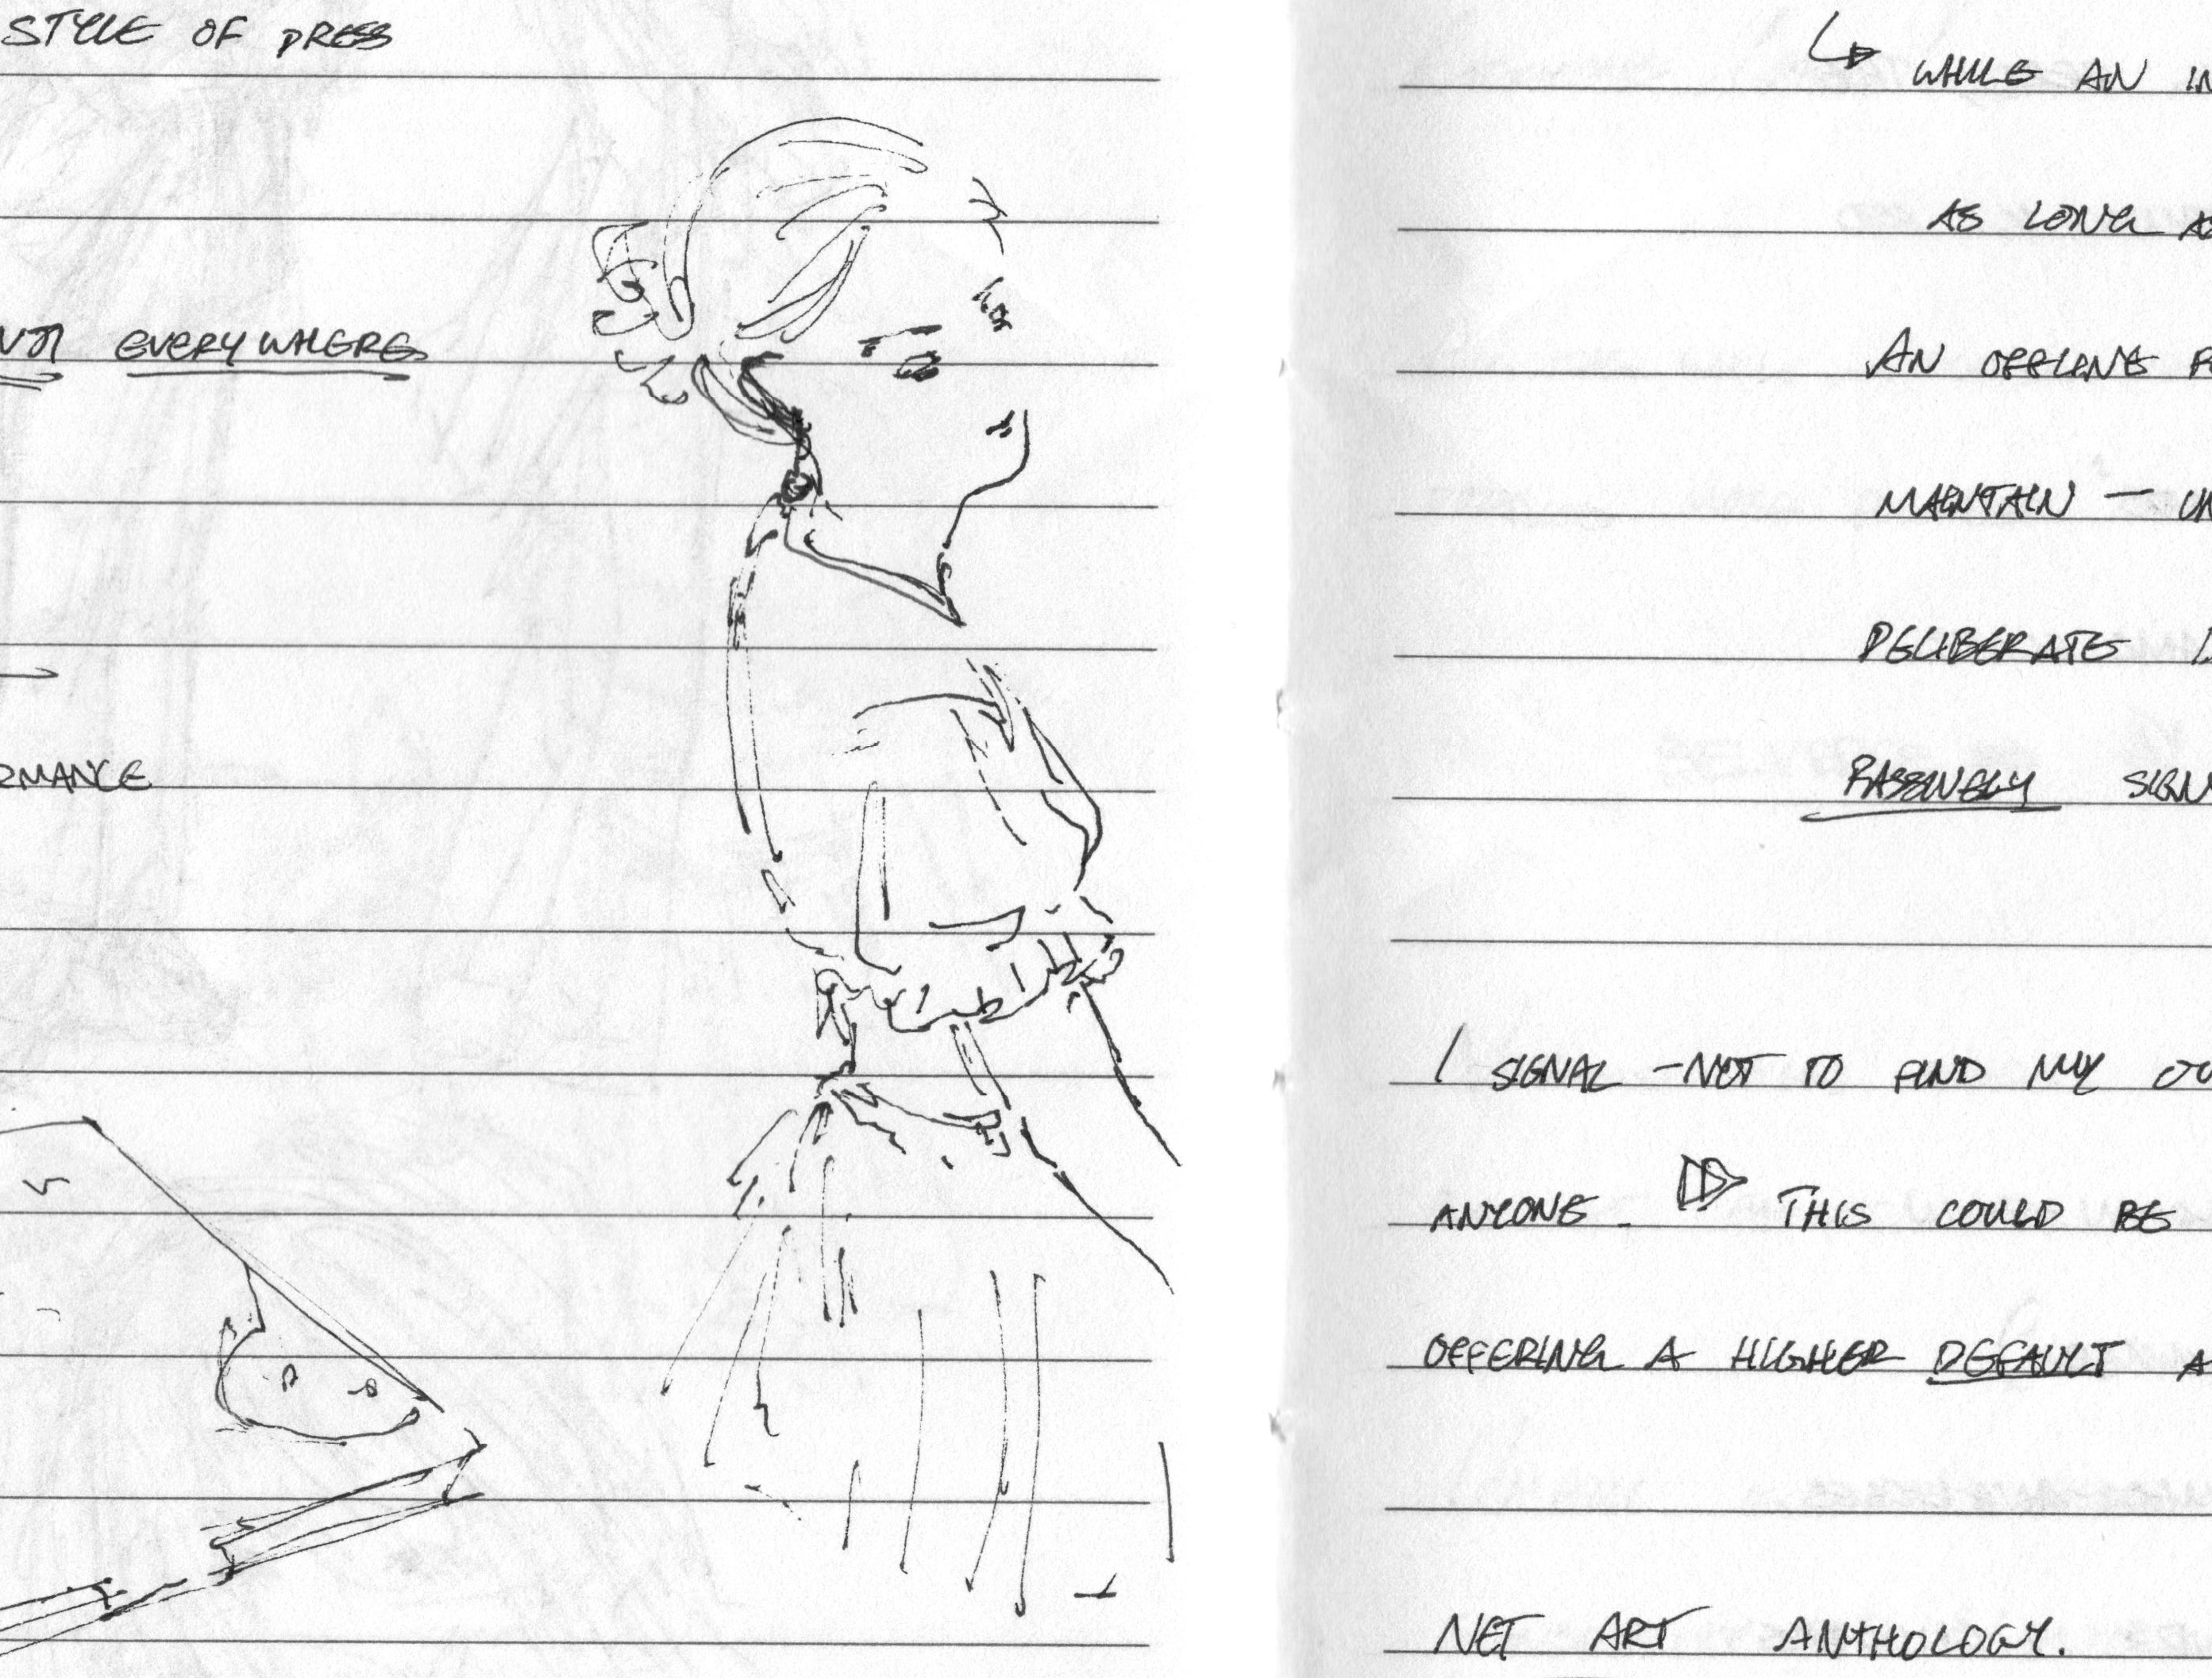 STYLE OF PRESS
EVERYWHERE
RMANCE
WHILE AN IN
AS LONG AS
AN OFFLINE
MAINTAIN —
DELIBERATE
PASSIVELY SIGN
I SIGNAL - NOT TO FIND MY OU
ANYONE. THIS COULD BE
OFFERING A HIGHER DEFAULT A
NET ART ANTHOLOGY.